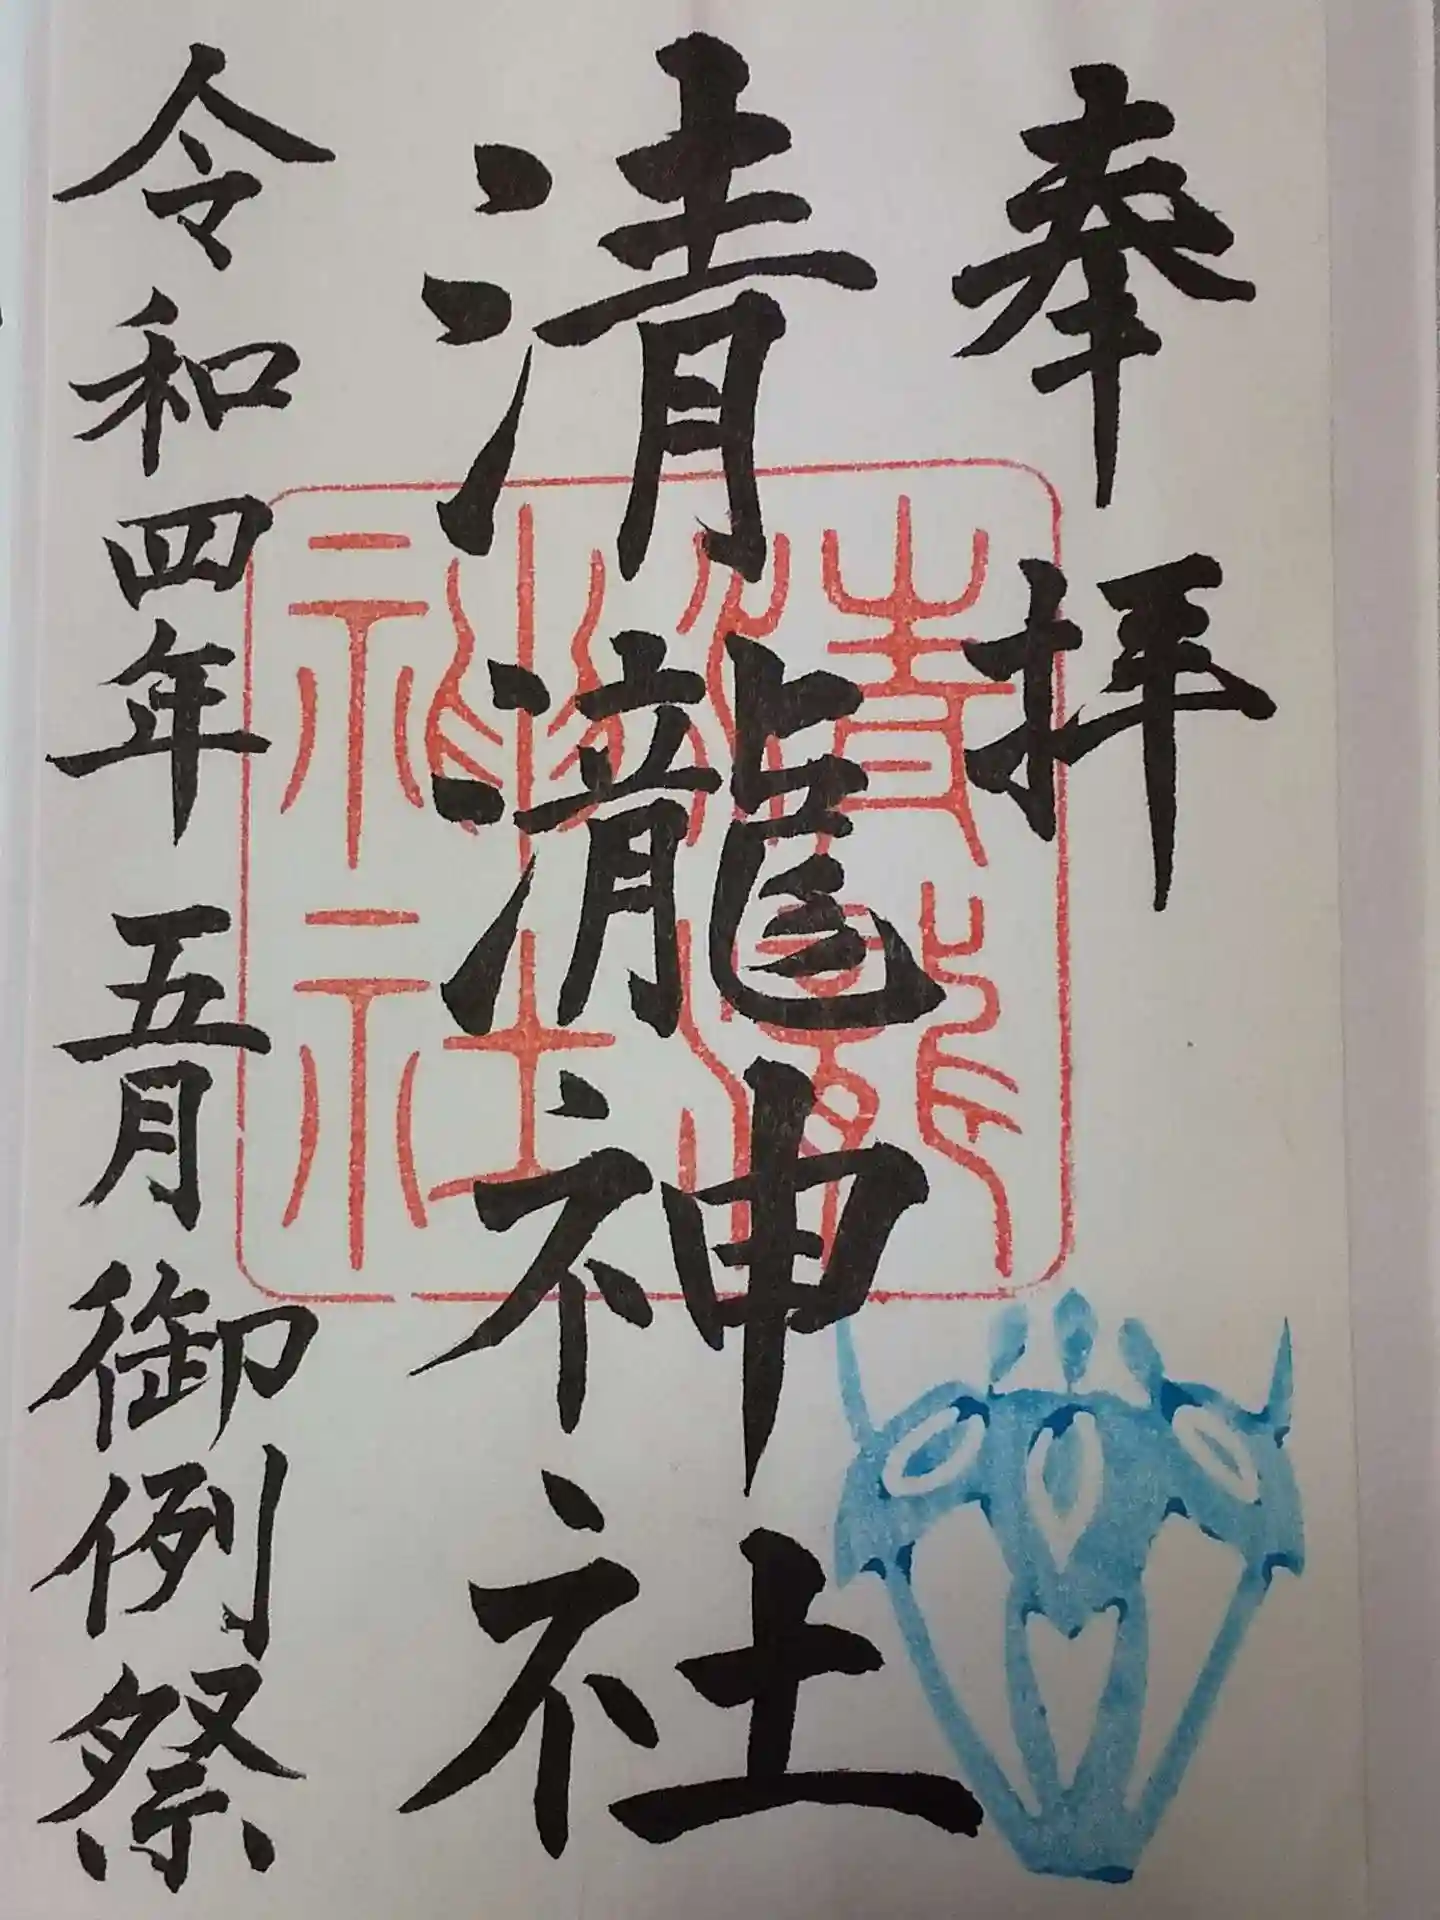 奉拝
清瀧神社
令和四年五月御例祭
清瀧神社